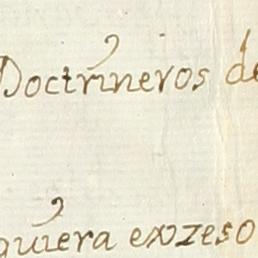 Doctrineros de
quiera exzeso